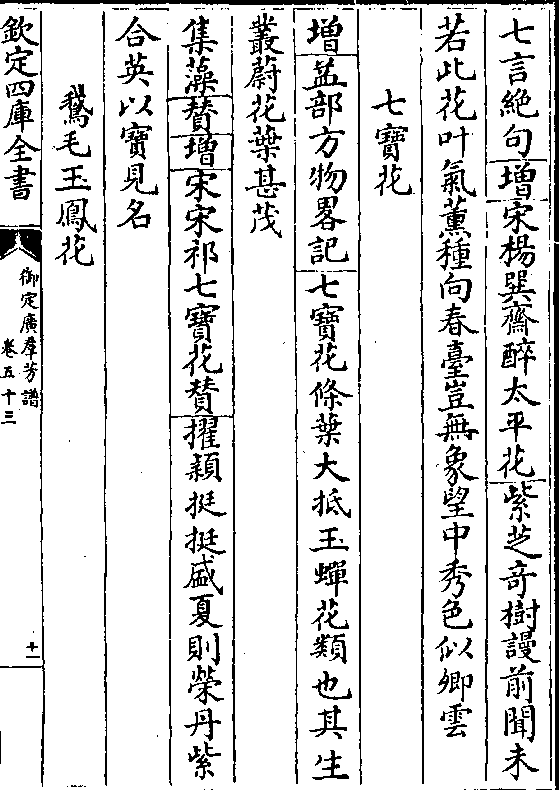 七言絶句增宋楊巽齋醉太平花紫芝奇樹謾前聞未
若此花叶氣薰種向春臺豈無象望中秀色似卿雲
七寶花
增益部方物畧記七寶花條葉大抵玉蟬花類也其生
叢蔚花葉甚茂
集藻贊增宋宋祁七寶花贊擢穎挺挺盛夏則榮丹紫
合英以寶見名
鵞毛玉鳳花
欽定四庫全書
御定廣羣芳譜
卷五十三
十一